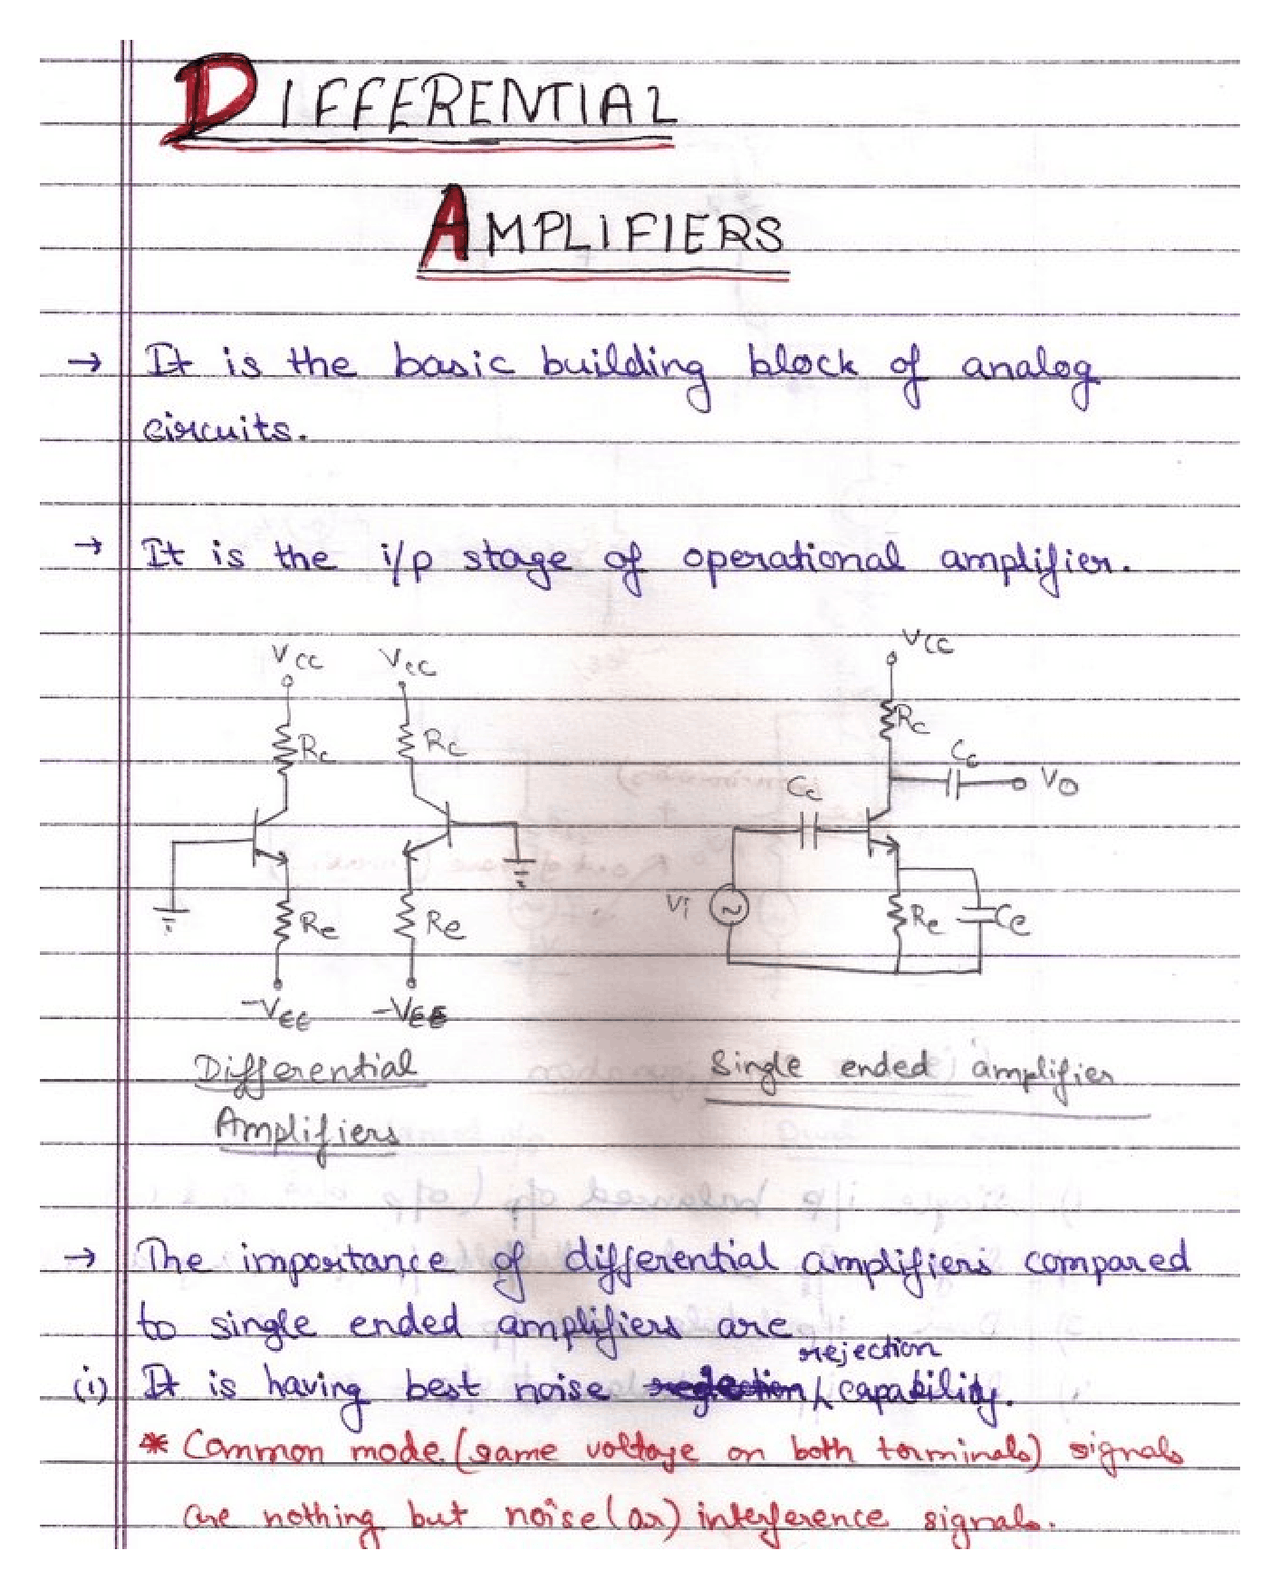 DIFFERENTIAL
AMPLIFIERS
→ It is the basic building block of analog
circuits.
→ It is the i/p stage of operational amplifier.
Vcc Vcc
Vcc
Rc Rc
Rc
Cc
Vo
Cc
Vi
Re Re
Re Ce
-VEE -VEE
Differential
Amplifiers
Single ended amplifier
→ The importance of differential amplifiers compared
to single ended amplifiers are
rejection
(i) It is having best noise capability.
* Common mode (same voltage on both terminals) signals
are nothing but noise (or) interference signals.